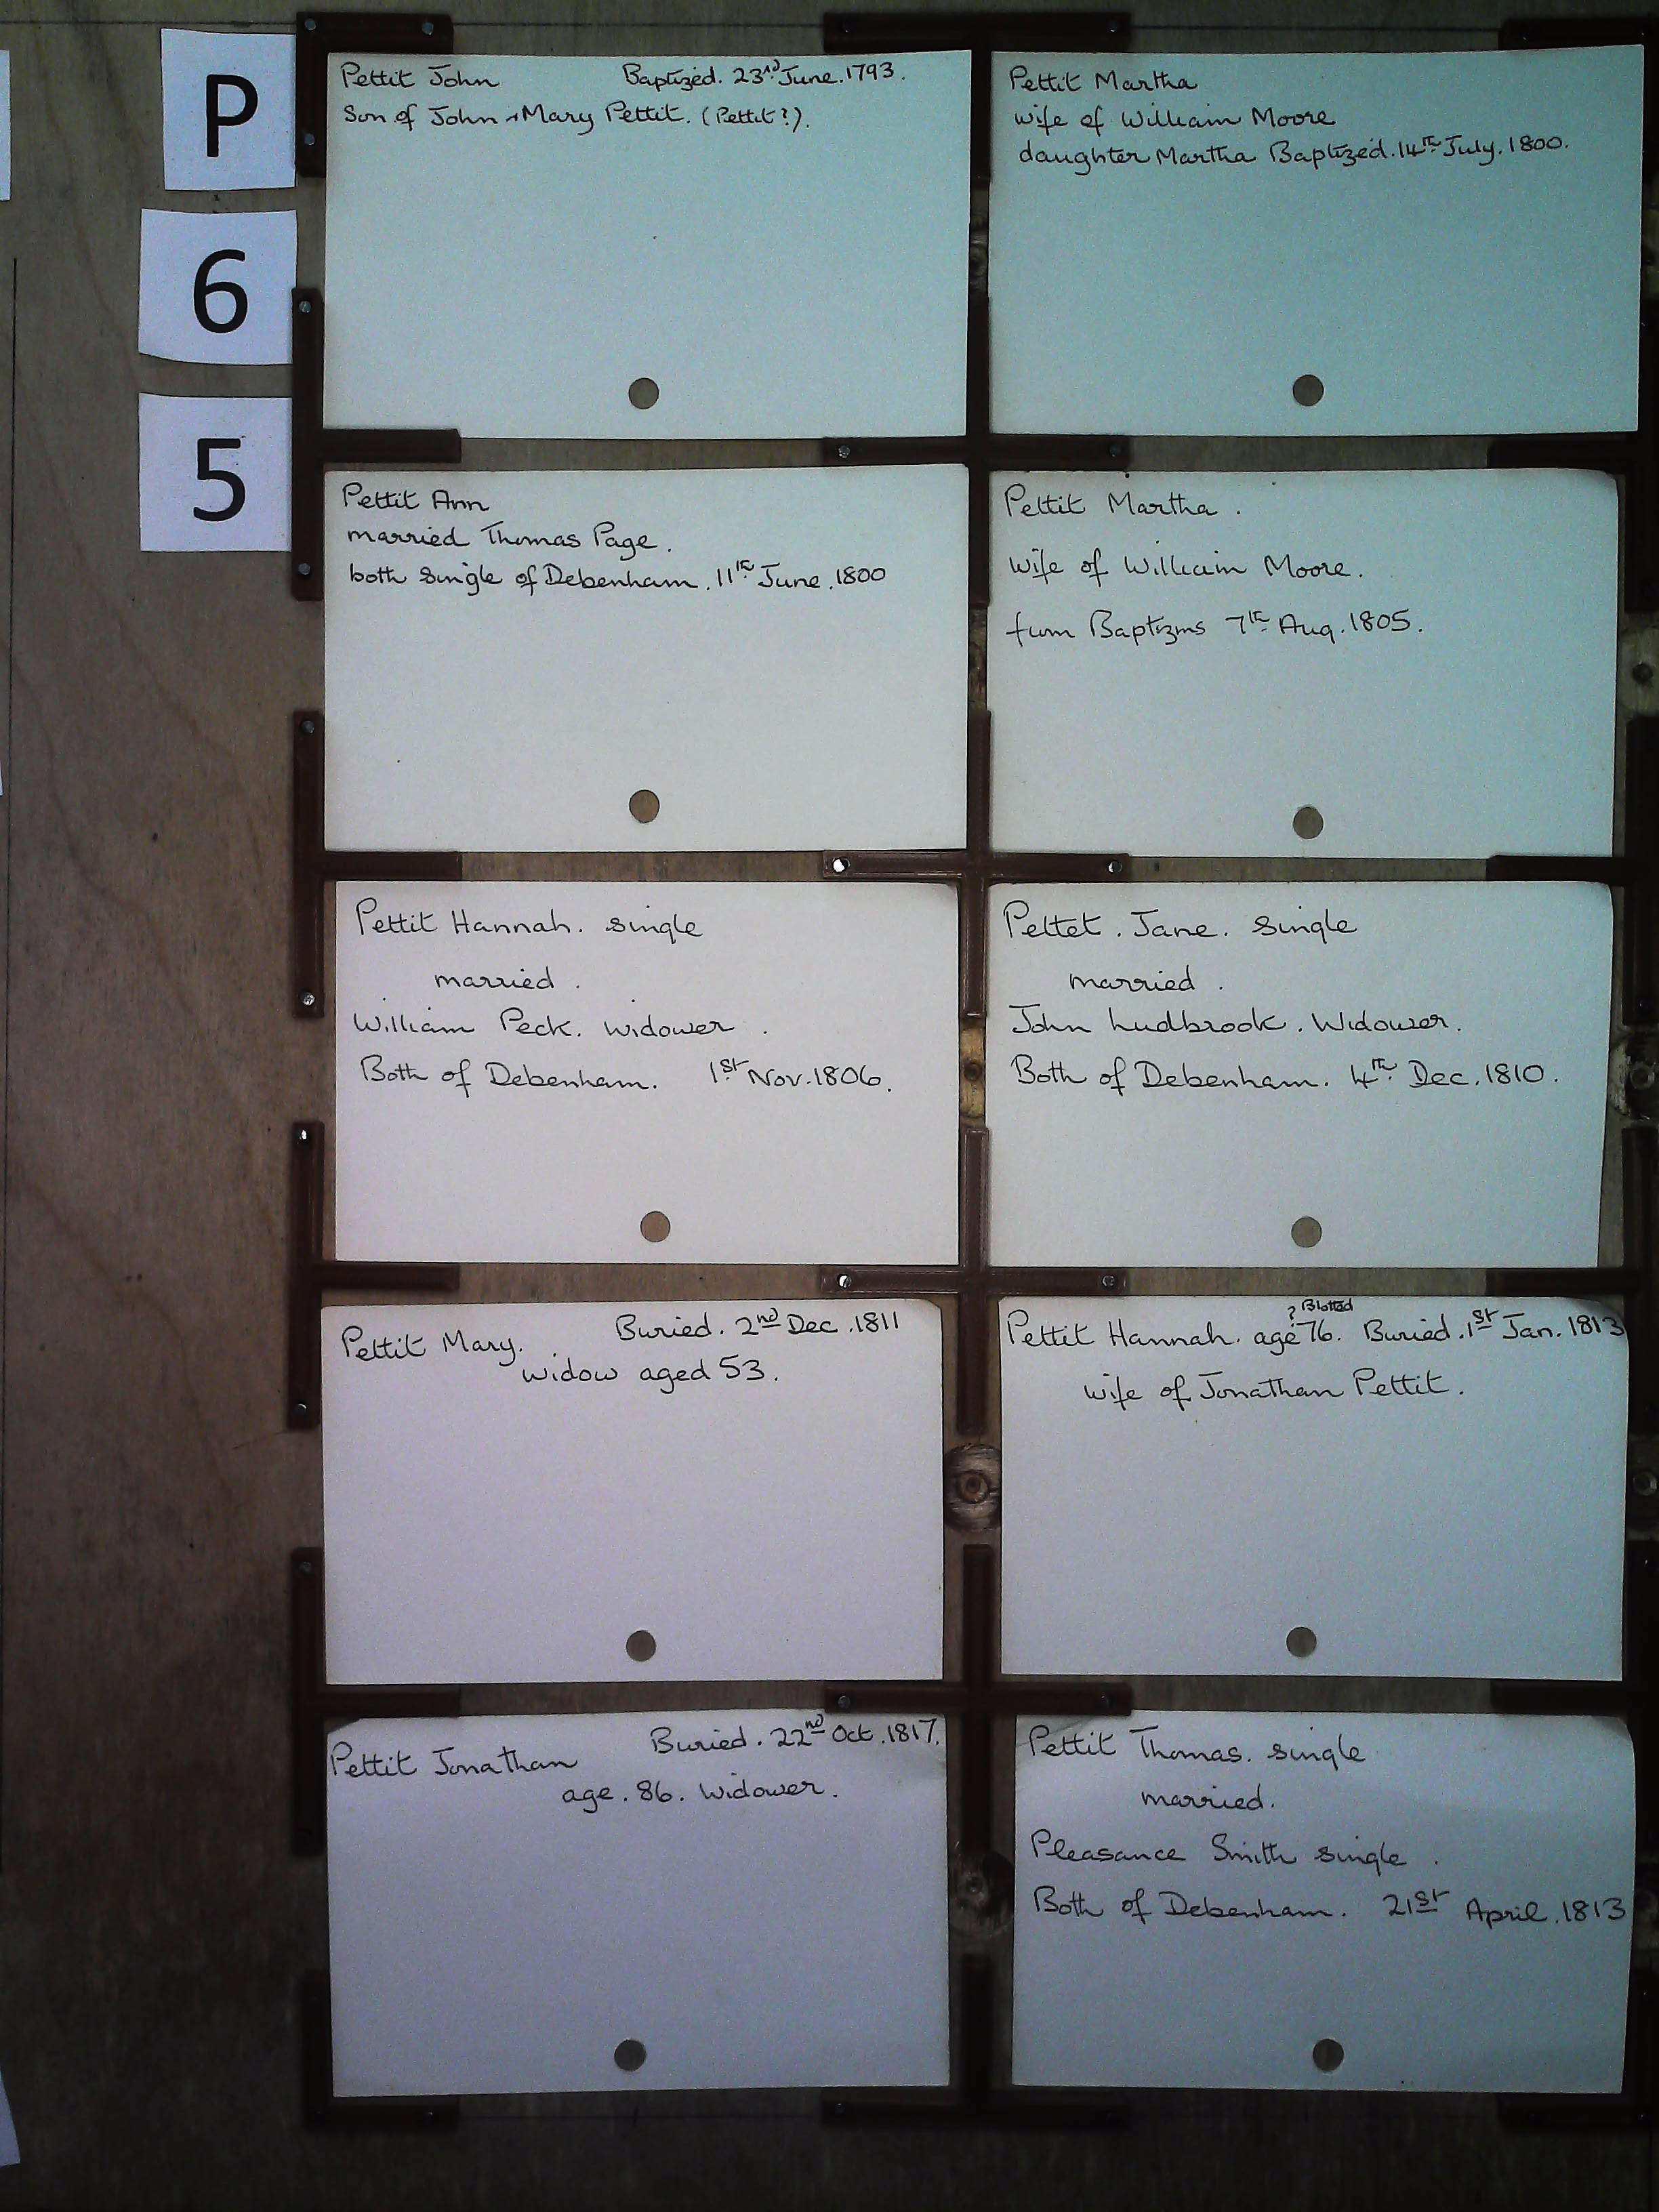 P
6
5
Pettit John Baptized. 23rd June. 1793.
Son of John + Mary Pettit. (Pettit?).
Pettit Martha
wife of William Moore
daughter Martha Baptized. 14th July. 1800.
Pettit Ann
married Thomas Page.
both single of Debenham. 11th June. 1800
Pettit Martha.
Wife of William Moore.
from Baptizms 7th Aug. 1805.
Pettit Hannah. single
married.
William Peck. widower.
Both of Debenham. 1st Nov. 1806.
Pettet. Jane. single
married.
John Ludbrook. Widower.
Both of Debenham. 4th Dec. 1810.
Pettit Mary. Buried. 2nd Dec. 1811
widow aged 53.
? Blotted
Pettit Hannah. age 76. Buried. 1st Jan. 1813
wife of Jonathan Pettit.
Pettit Jonathan Buried. 22nd Oct. 1817.
age. 86. Widower.
Pettit Thomas. single
married.
Pleasance Smith single.
Both of Debenham. 21st April. 1813